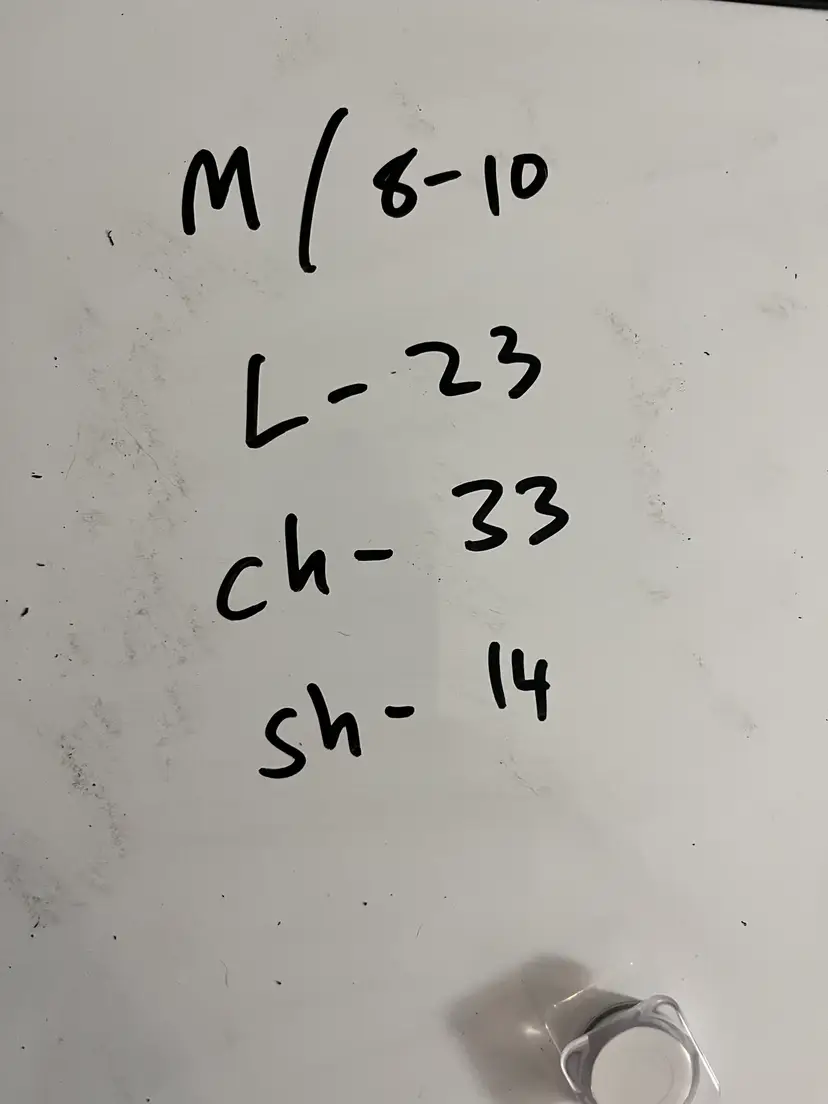 M / 8-10
L- 23
ch- 33
sh- 14